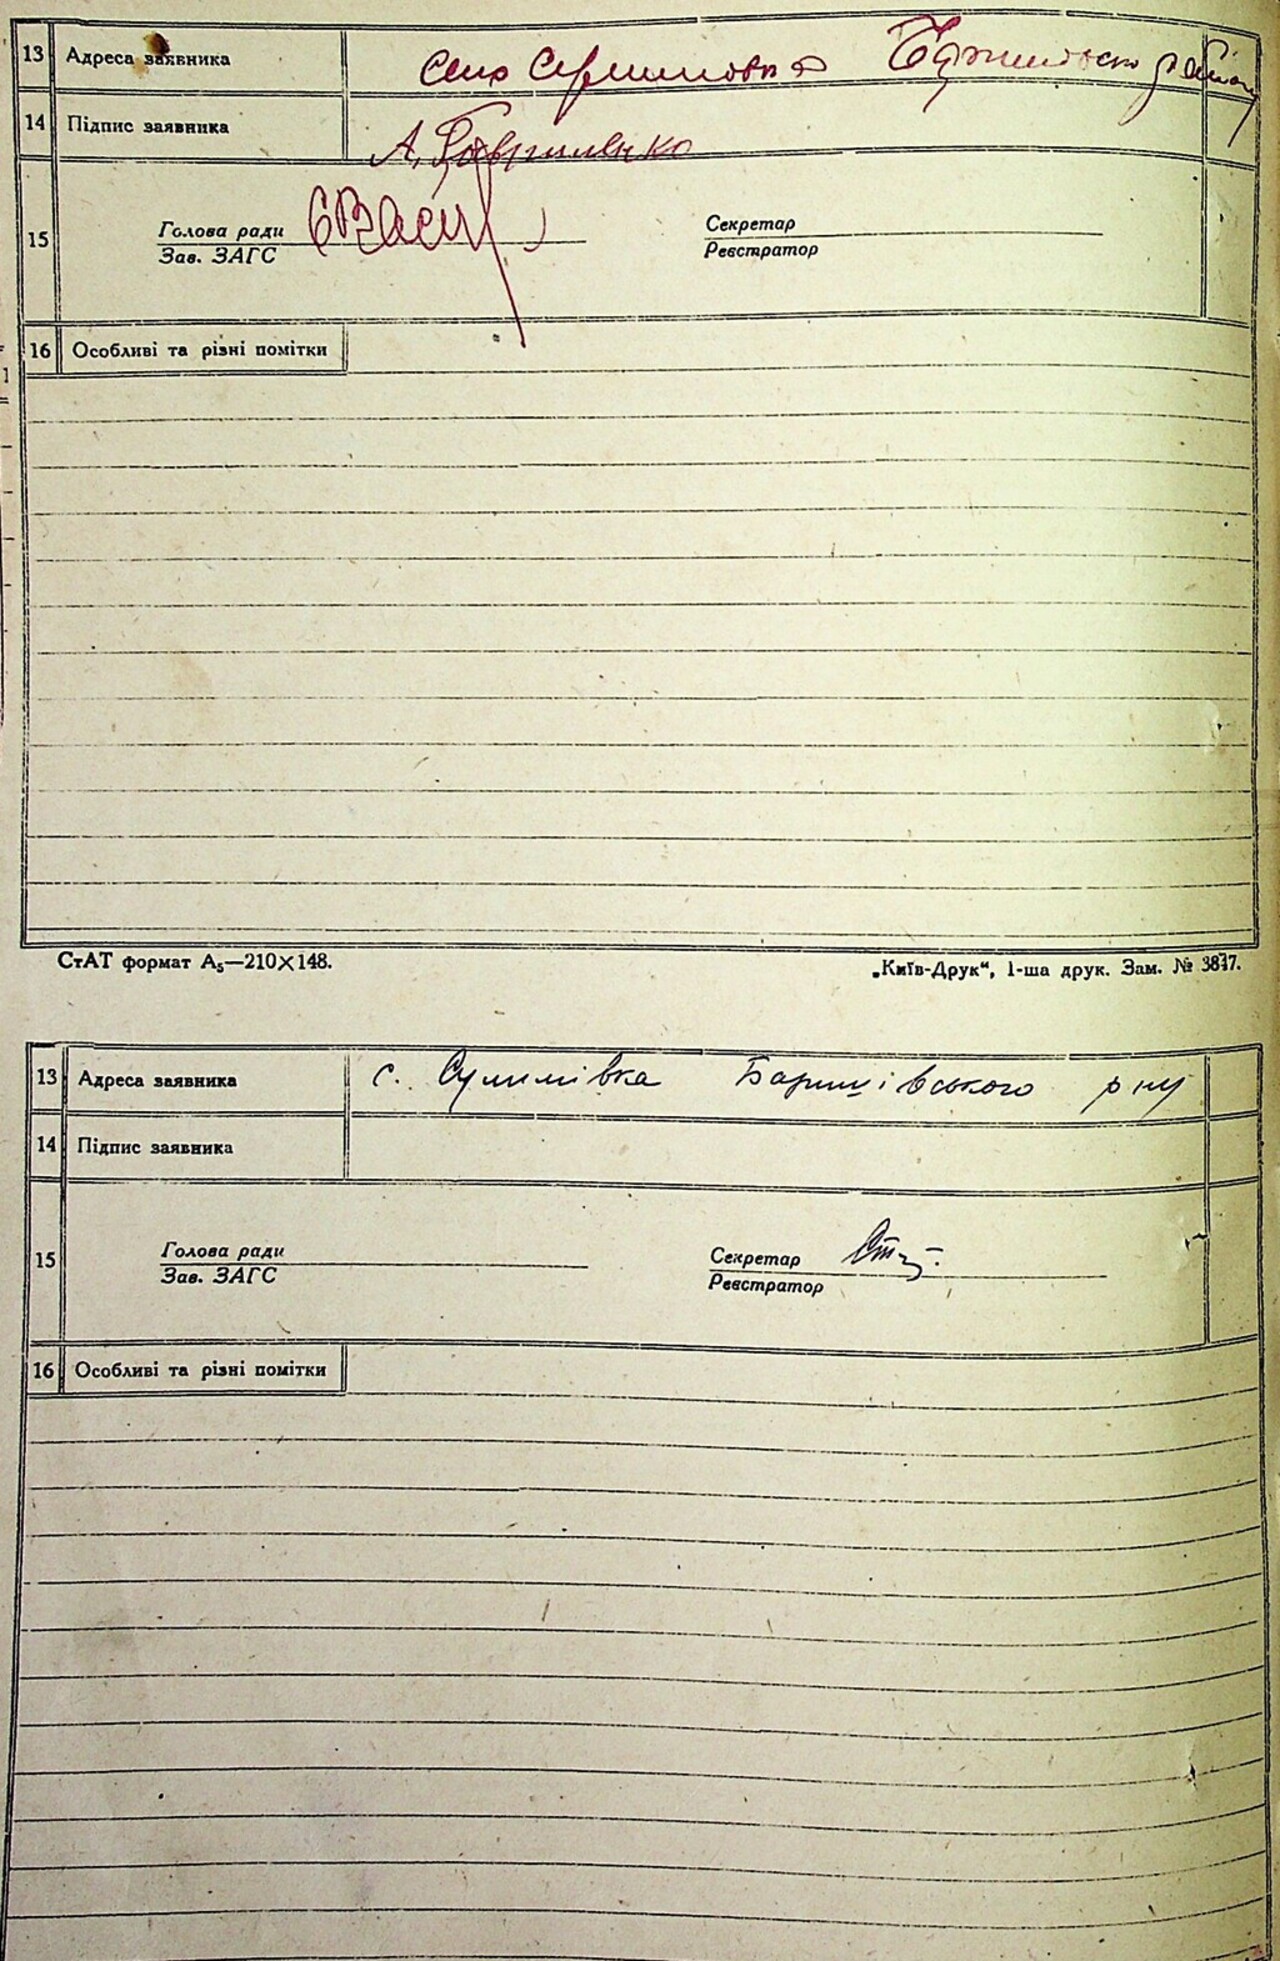 13 Адреса заявника Село
14 Підпис заявника А. Гавриленко
15 Голова ради Секретар
Зав. ЗАГС Реєстратор
16 Особливі та різні помітки
СтАТ формат А₅—210×148. „Київ-Друк“, 1-ша друк. Зам. № 3847.
13 Адреса заявника с. Сулимівка Баришівського р ну
14 Підпис заявника
15 Голова ради Секретар
Зав. ЗАГС Реєстратор
16 Особливі та різні помітки